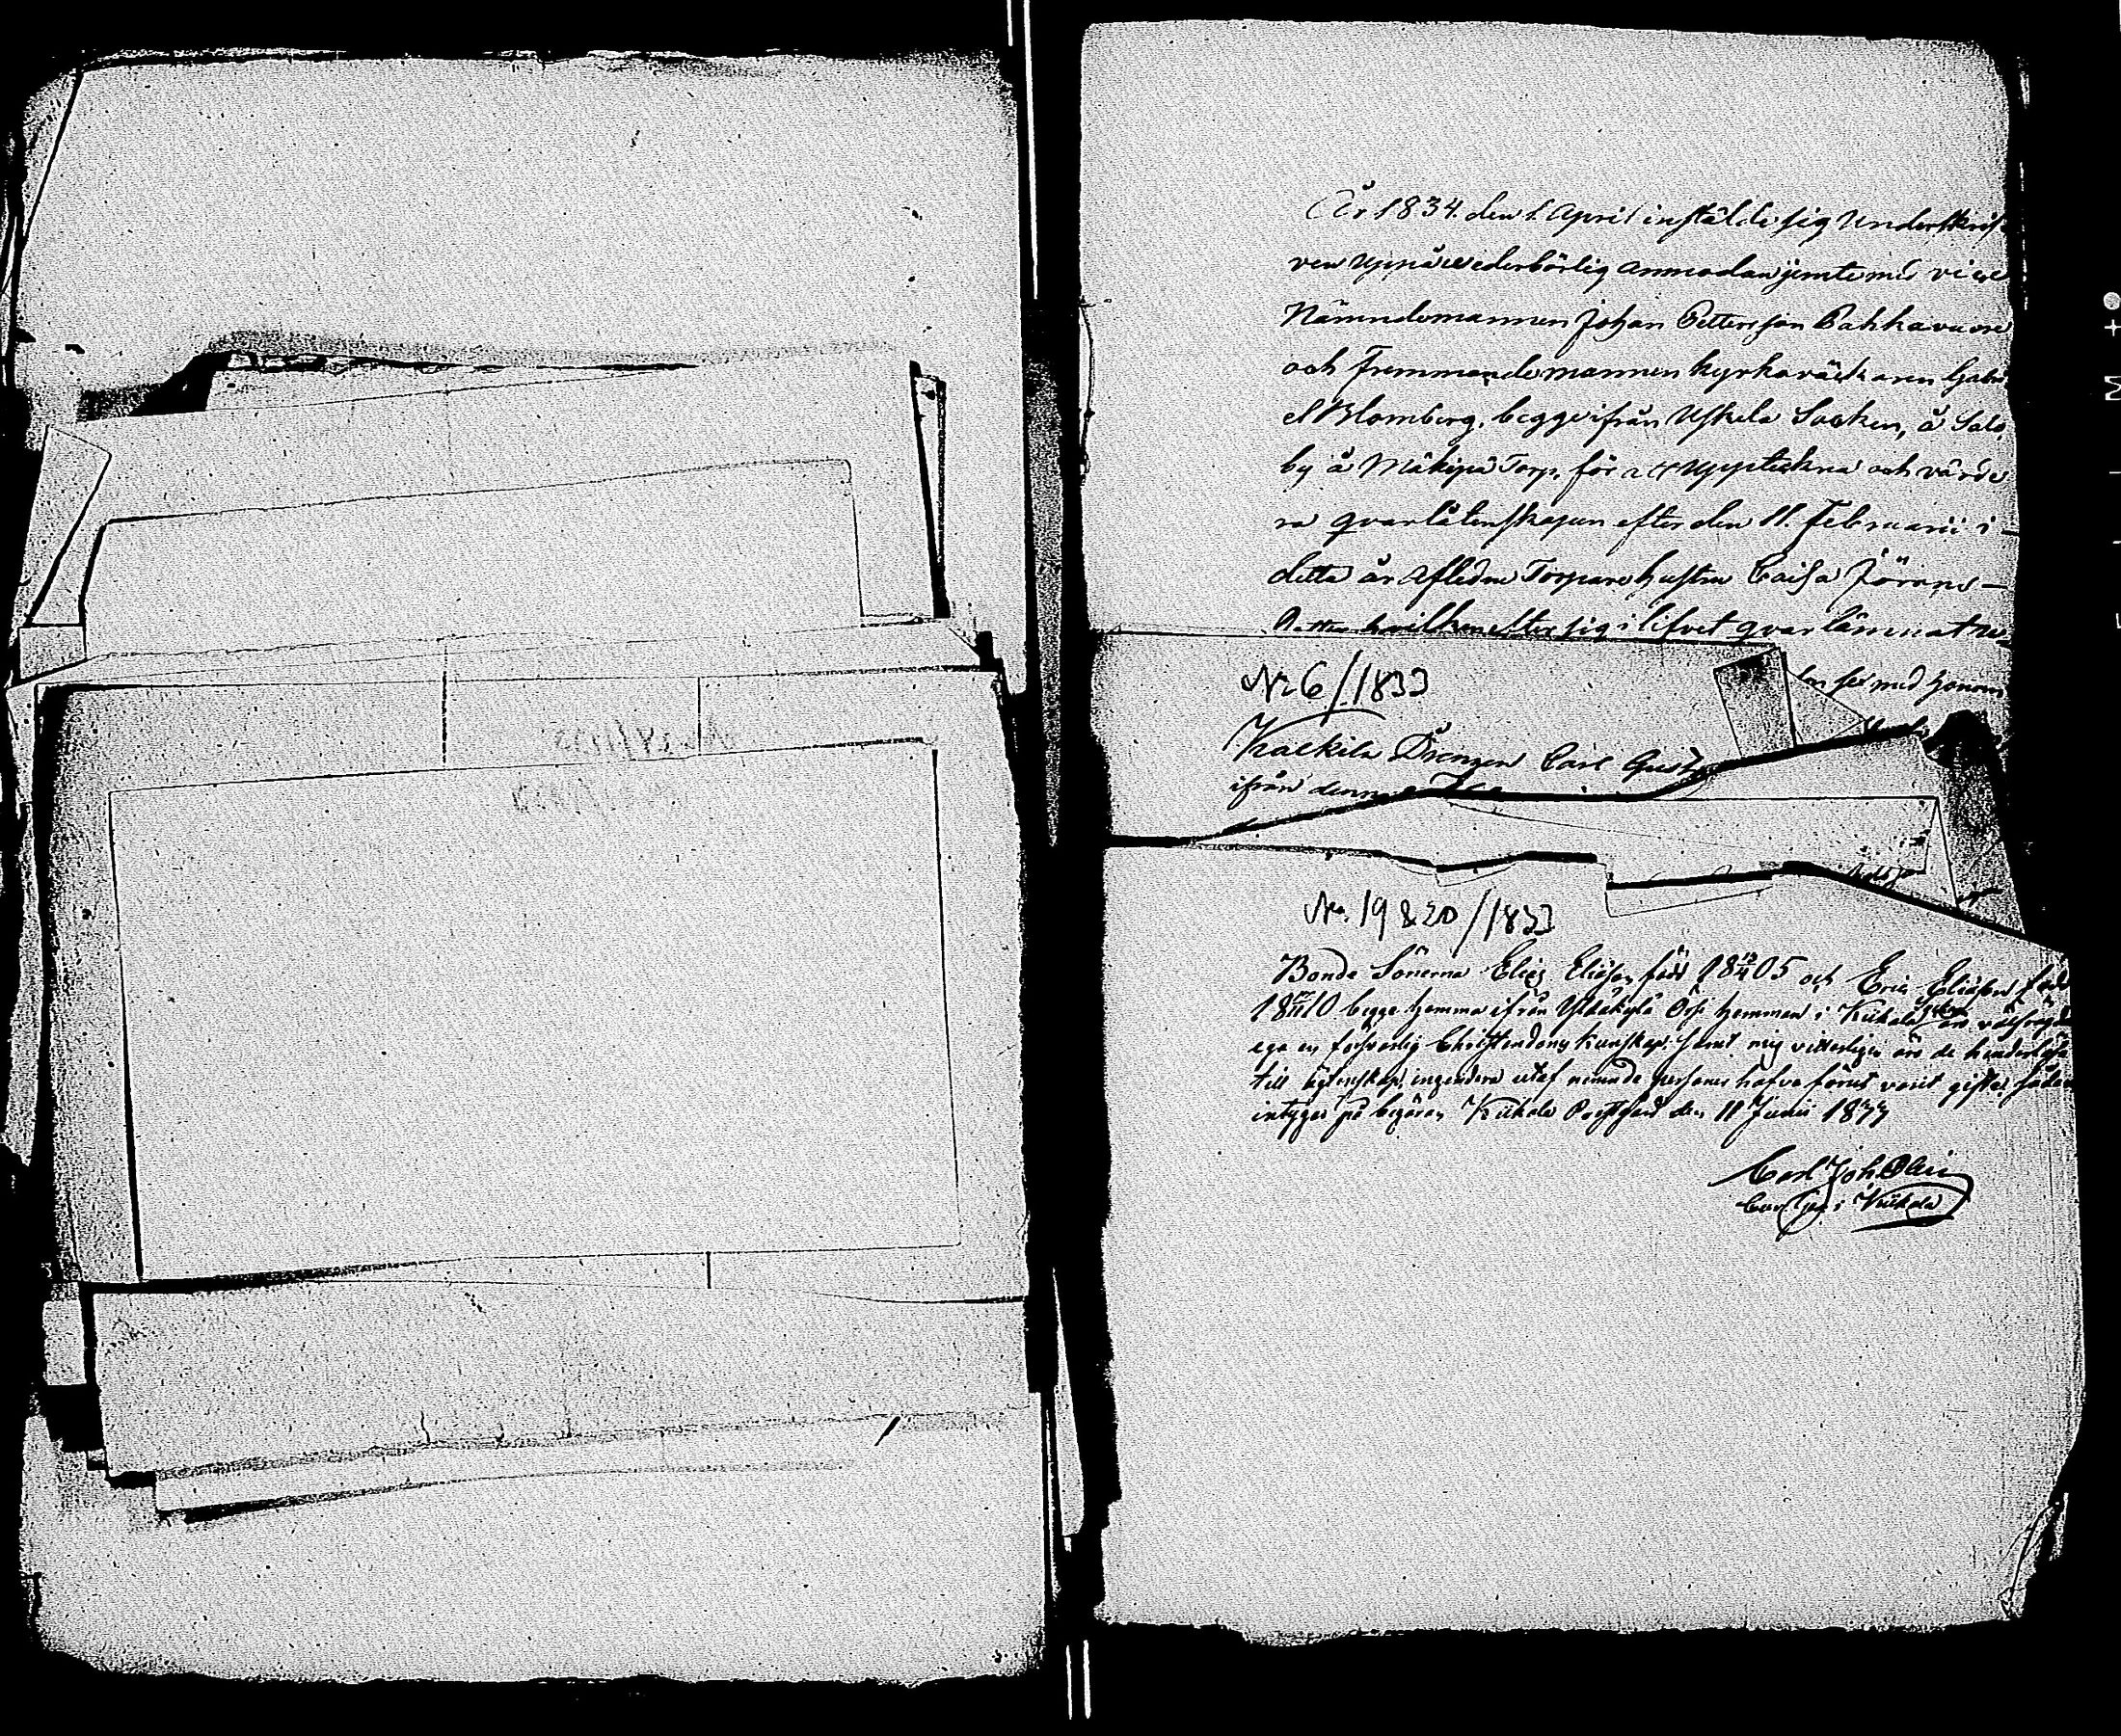 År 1834. den 1. April instälde sig Underskrif-
ven uppå wederbörlig anmodan jemte med vice
Nämndemannen Johan Pettersson Pahkavuore
och Fremmandemannen kyrkoväcktaren Gabri
el Blomberg, begge ifrån Uskela Socken, å Salo
by å Mäkipä Torp, för att Uppteckna och värde
ra qvarlåtenskapen efter den 11. Februarii i
detta år Afledne Torpare hustru Caisa Jörans-
Dotter hvilken efter sig i lifvet qvarlämnat
med honom
No 6/1833
Kaekila Drengen Carl Gust
ifrån denna
No. 19 & 20/1833
Bonde Sönerna Elias Eliasson född 18 05 och Eric Eliasson född
18 10 begge hemma ifrån Yltäkylä hemman i Kiikala Socken äro
ega en försvarlig Christendoms kunskap. Samt mig vitterligen äro de hinderlösa
till äktenskap, ingendera utaf nämnde personer hafva förut varit gifte, sådan
intygas på begäran Kiikala Prestgård den 11 Junii 1833
Carl Joh.
i Kiikala